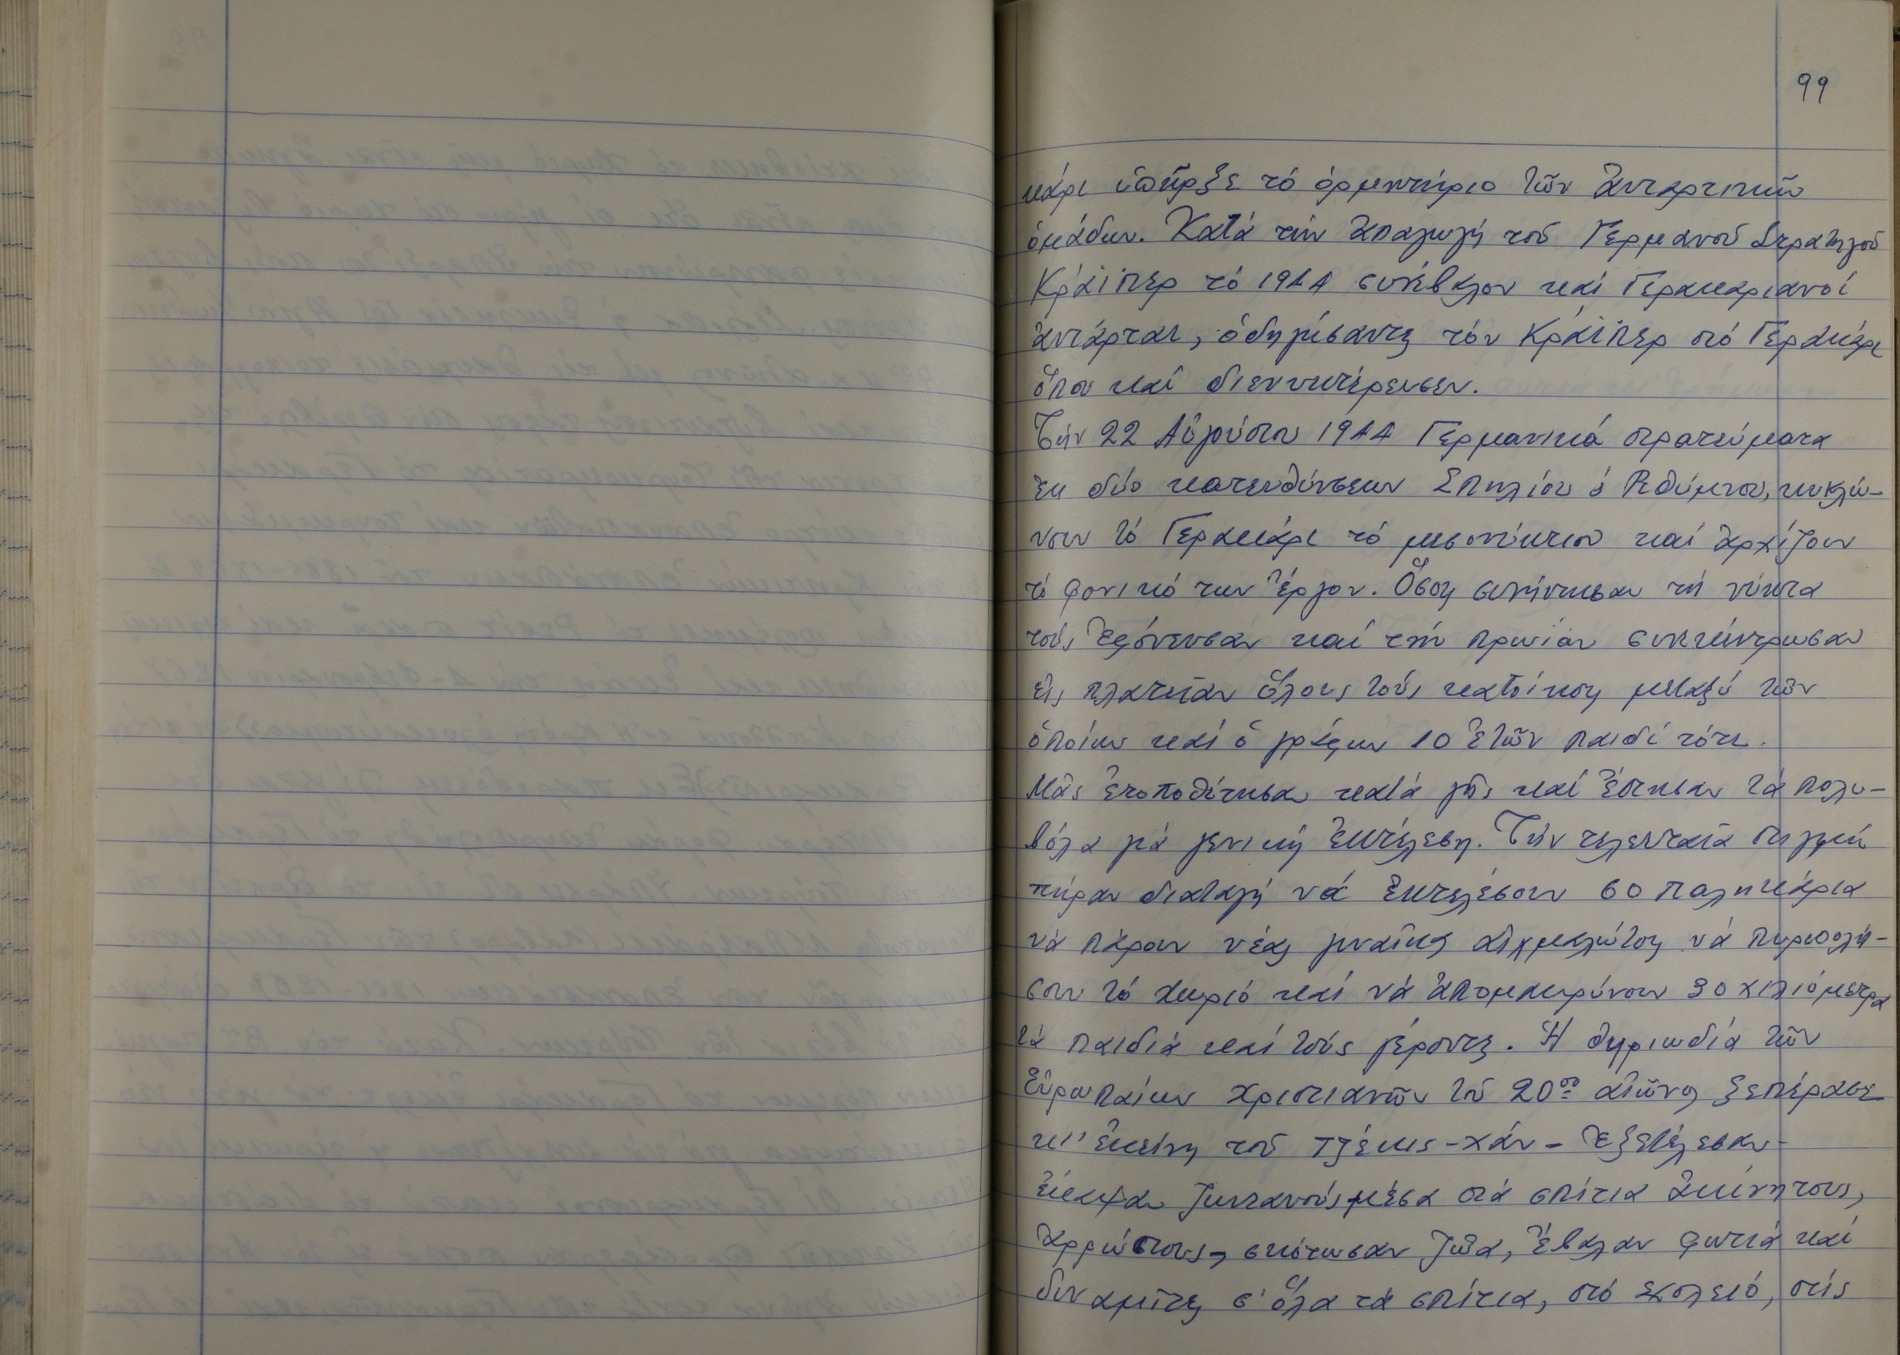 99
κάρι ὑπῆρξε τό ὁρμητήριο τῶν ἀνταρτικῶν
ὁμάδων. Κατά τήν ἀπαγωγή τοῦ Γερμανοῦ Στρατηγοῦ
Κράϊπερ τό 1944 συνέβαλον καί Γερακαριανοί
ἀντάρται, ὁδηγήσαντες τόν Κράϊπερ στό Γερακάρι
ὅπου καί διενυκτέρευσεν.
Τήν 22 Αὐγούστου 1944 Γερμανικά στρατεύματα
ἐκ δύο κατευθύνσεων Σπηλίου ὁ Ρεθύμνου, κυκλώ-
νουν τό Γερακάρι τό μεσονύκτιον καί ἀρχίζουν
τό φονικό των ἔργον. Ὅσους συνήντησαν τή νύκτα
τούς ἐφόνευσαν καί τήν πρωΐαν συνεκέντρωσαν
εἰς πλατεῖαν ὅλους τούς κατοίκους μεταξύ τῶν
ὁποίων καί ὁ γράφων 10 ἐτῶν παιδί τότε.
Μᾶς ἐτοποθέτησαν κατά γῆς καί ἔστησαν τά πολυ-
βόλα γιά γενική ἐκτέλεση. Τήν τελευταῖα στιγμή
πῆραν διαταγή νά ἐκτελέσουν 60 παλικάρια
νά πάρουν νέας γυναῖκας αἰχμαλώτους νά πυρπολή-
σουν τό χωριό καί νά ἀπομακρύνουν 30 χιλιόμετρα
τά παιδιά καί τούς γέροντες. Ἡ θηριωδία τῶν
Εὐρωπαίων Χριστιανῶν τοῦ 20οῦ αἰῶνος ξεπέρασε
κι' ἐκείνη τοῦ Τζέκις-χάν - Ἐξετέλεσαν-
ἔκαψαν ζωντανούς μέσα στά σπίτια ἀκίνητους,
ἀρρώστους, σκότωσαν ζῶα, ἔβαλαν φωτιά καί
δυναμῖτες σ' ὅλα τά σπίτια, στό σχολειό, στίς